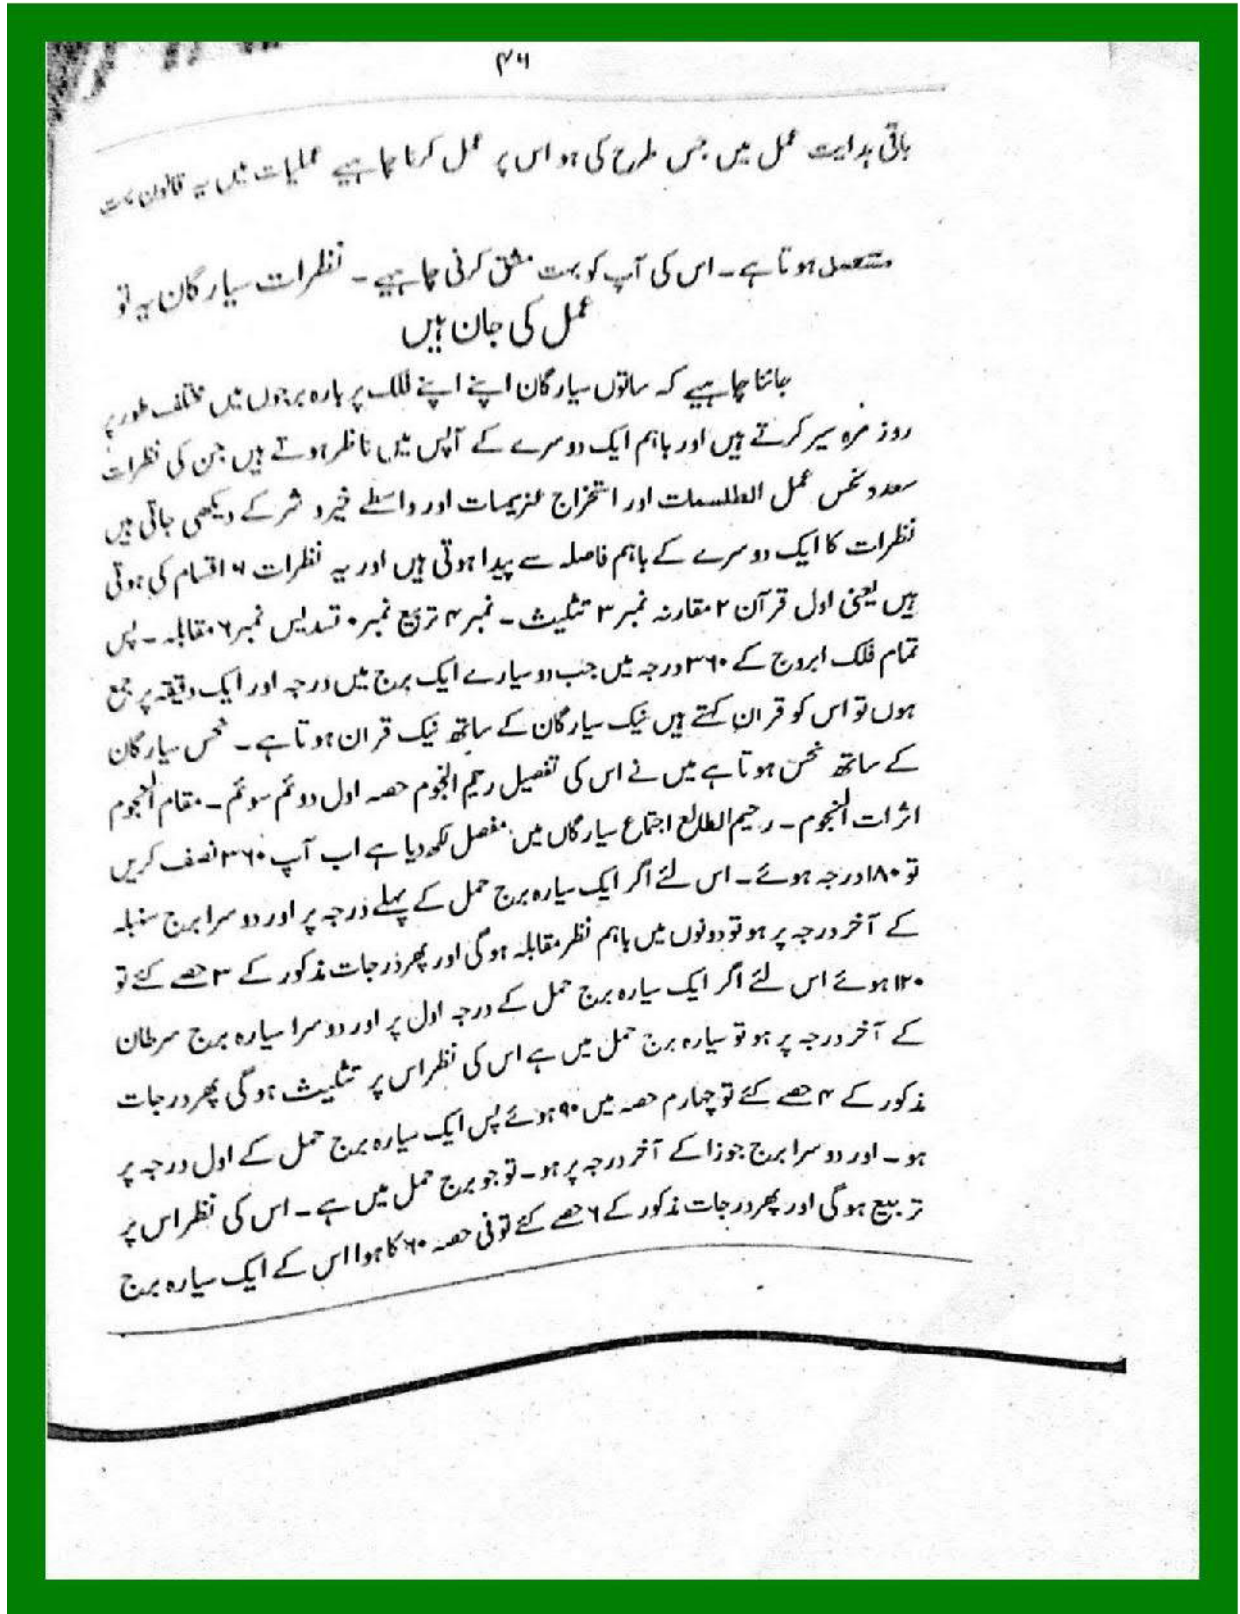 ۴۶
باقی ہدایت عمل میں جس طرح کی ہو اس پر عمل کرنا چاہیے عملیات میں یہ قانون بہت
مستعمل ہوتا ہے۔ اس کی آپ کو بہت مشق کرنی چاہیے۔ نظرات سیارگان یہ تو
عمل کی جان ہیں
جاننا چاہیے کہ ساتوں سیارگان اپنے اپنے فلک پر بارہ برجوں میں مختلف طور پر
روز مرہ سیر کرتے ہیں اور باہم ایک دوسرے کے آپس میں ناظر ہوتے ہیں جن کی نظرات
سعد و نحس عمل الطلسمات اور استخراج عزیمات اور واسطے خیر و شر کے دیکھی جاتی ہیں
نظرات کا ایک دوسرے کے باہم فاصلہ سے پیدا ہوتی ہیں اور یہ نظرات ۶ اقسام کی ہوتی
ہیں یعنی اول قرآن ۲ مقارنہ نمبر ۳ تثلیث۔ نمبر ۴ تربیع نمبر ۰ تسدیس نمبر ۶ مقابلہ۔ پس
تمام فلک ابروج کے ۳۶۰ درجہ میں جب دو سیارے ایک برج میں درجہ اور ایک دقیقہ پر جمع
ہوں تو اس کو قران کہتے ہیں نیک سیارگان کے ساتھ نیک قران ہوتا ہے۔ نحس سیارگان
کے ساتھ نحس ہوتا ہے میں نے اس کی تفصیل رحیم النجوم حصہ اول دوئم سوئم۔ مقام النجوم
اثرات النجوم۔ رحیم الطالع اجتماع سیارگاں میں مفصل لکھ دیا ہے اب آپ ۳۶۰ نصف کریں
تو ۱۸۰ درجہ ہوئے۔ اس لئے اگر ایک سیارہ برج حمل کے پہلے درجہ پر اور دوسرا برج سنبلہ
کے آخر درجہ پر ہو تو دونوں میں باہم نظر مقابلہ ہوگی اور پھر درجات مذکور کے ۳ حصے کئے تو
۱۲۰ ہوئے اس لئے اگر ایک سیارہ برج حمل کے درجہ اول پر اور دوسرا سیارہ برج سرطان
کے آخر درجہ پر ہو تو سیارہ برج حمل میں ہے اس کی نظر اس پر تثلیث ہوگی پھر درجات
مذکور کے ۴ حصے کئے تو چہارم حصہ میں ۹۰ ہوئے پس ایک سیارہ برج حمل کے اول درجہ پر
ہو۔ اور دوسرا برج جوزا کے آخر درجہ پر ہو۔ تو جو برج حمل میں ہے۔ اس کی نظر اس پر
تربیع ہوگی اور پھر درجات مذکور کے ۶ حصے کئے تو فی حصہ ۶۰ کا ہوا اس کے ایک سیارہ برج